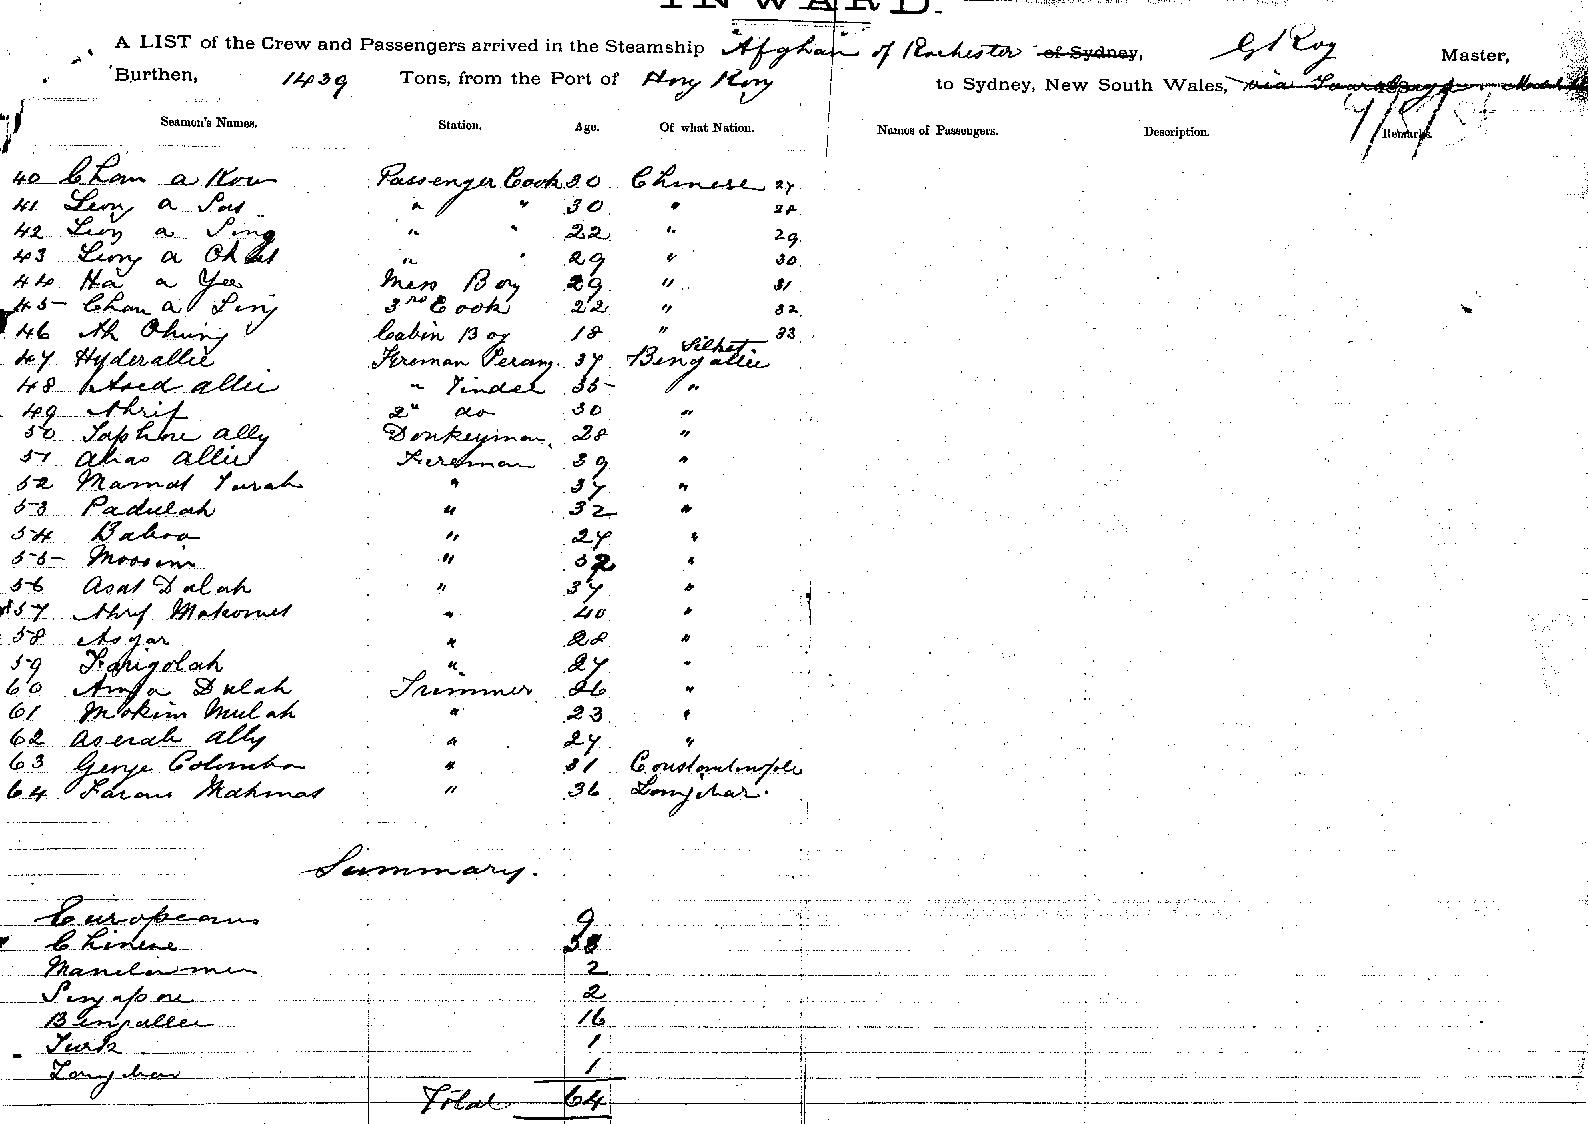 INWARD.
A LIST of the Crew and Passengers arrived in the Steamship Afghan of Rochester of Sydney, G Roy Master,
Burthen, 1439 Tons, from the Port of Hong Kong to Sydney, New South Wales, via
Seamen's Names. Station. Age. Of what Nation. Names of Passengers. Description. Remarks.
40 Chan a Kow Passenger Cook 30 Chinese 27
41 Leong a " " 30 " 28
42 a Ping " " 22 " 29
43 Leong a " " 29 " 30
44 Ha a Yee Mess Boy 29 " 31
45 Chan a Ping 3rd Cook 22 " 32
46 Ah Chung Cabin Boy 18 " 33
47 Hyderallie Fireman Serang 37 Silhet Bengallie
48 allie " Tindel 35 "
49 Ahrif 2" do 30 "
50 Saphire ally Donkeyman 28 "
51 allie Fireman 39 "
52 Mamat Turah " 37 "
53 Padulah " 32 "
54 Baboo " 27 "
55 Moosim " 32 "
56 Asat Dulah " 37 "
57 Ahrif Makomet " 40 "
58 Asgar " 28 "
59 Farigolah " 27 "
60 Amja Dulah Trimmer 26 "
61 Mokim Mulah " 23 "
62 Aserah ally " 27 "
63 George Colombo " 31 Constantinople
64 Mahmas " 36 Zanzibar.
Summary.
Europeans 9
Chinese 33
Manilamen 2
Singapore 2
Bengallie 16
Turk 1
Zanzibar 1
Total 64